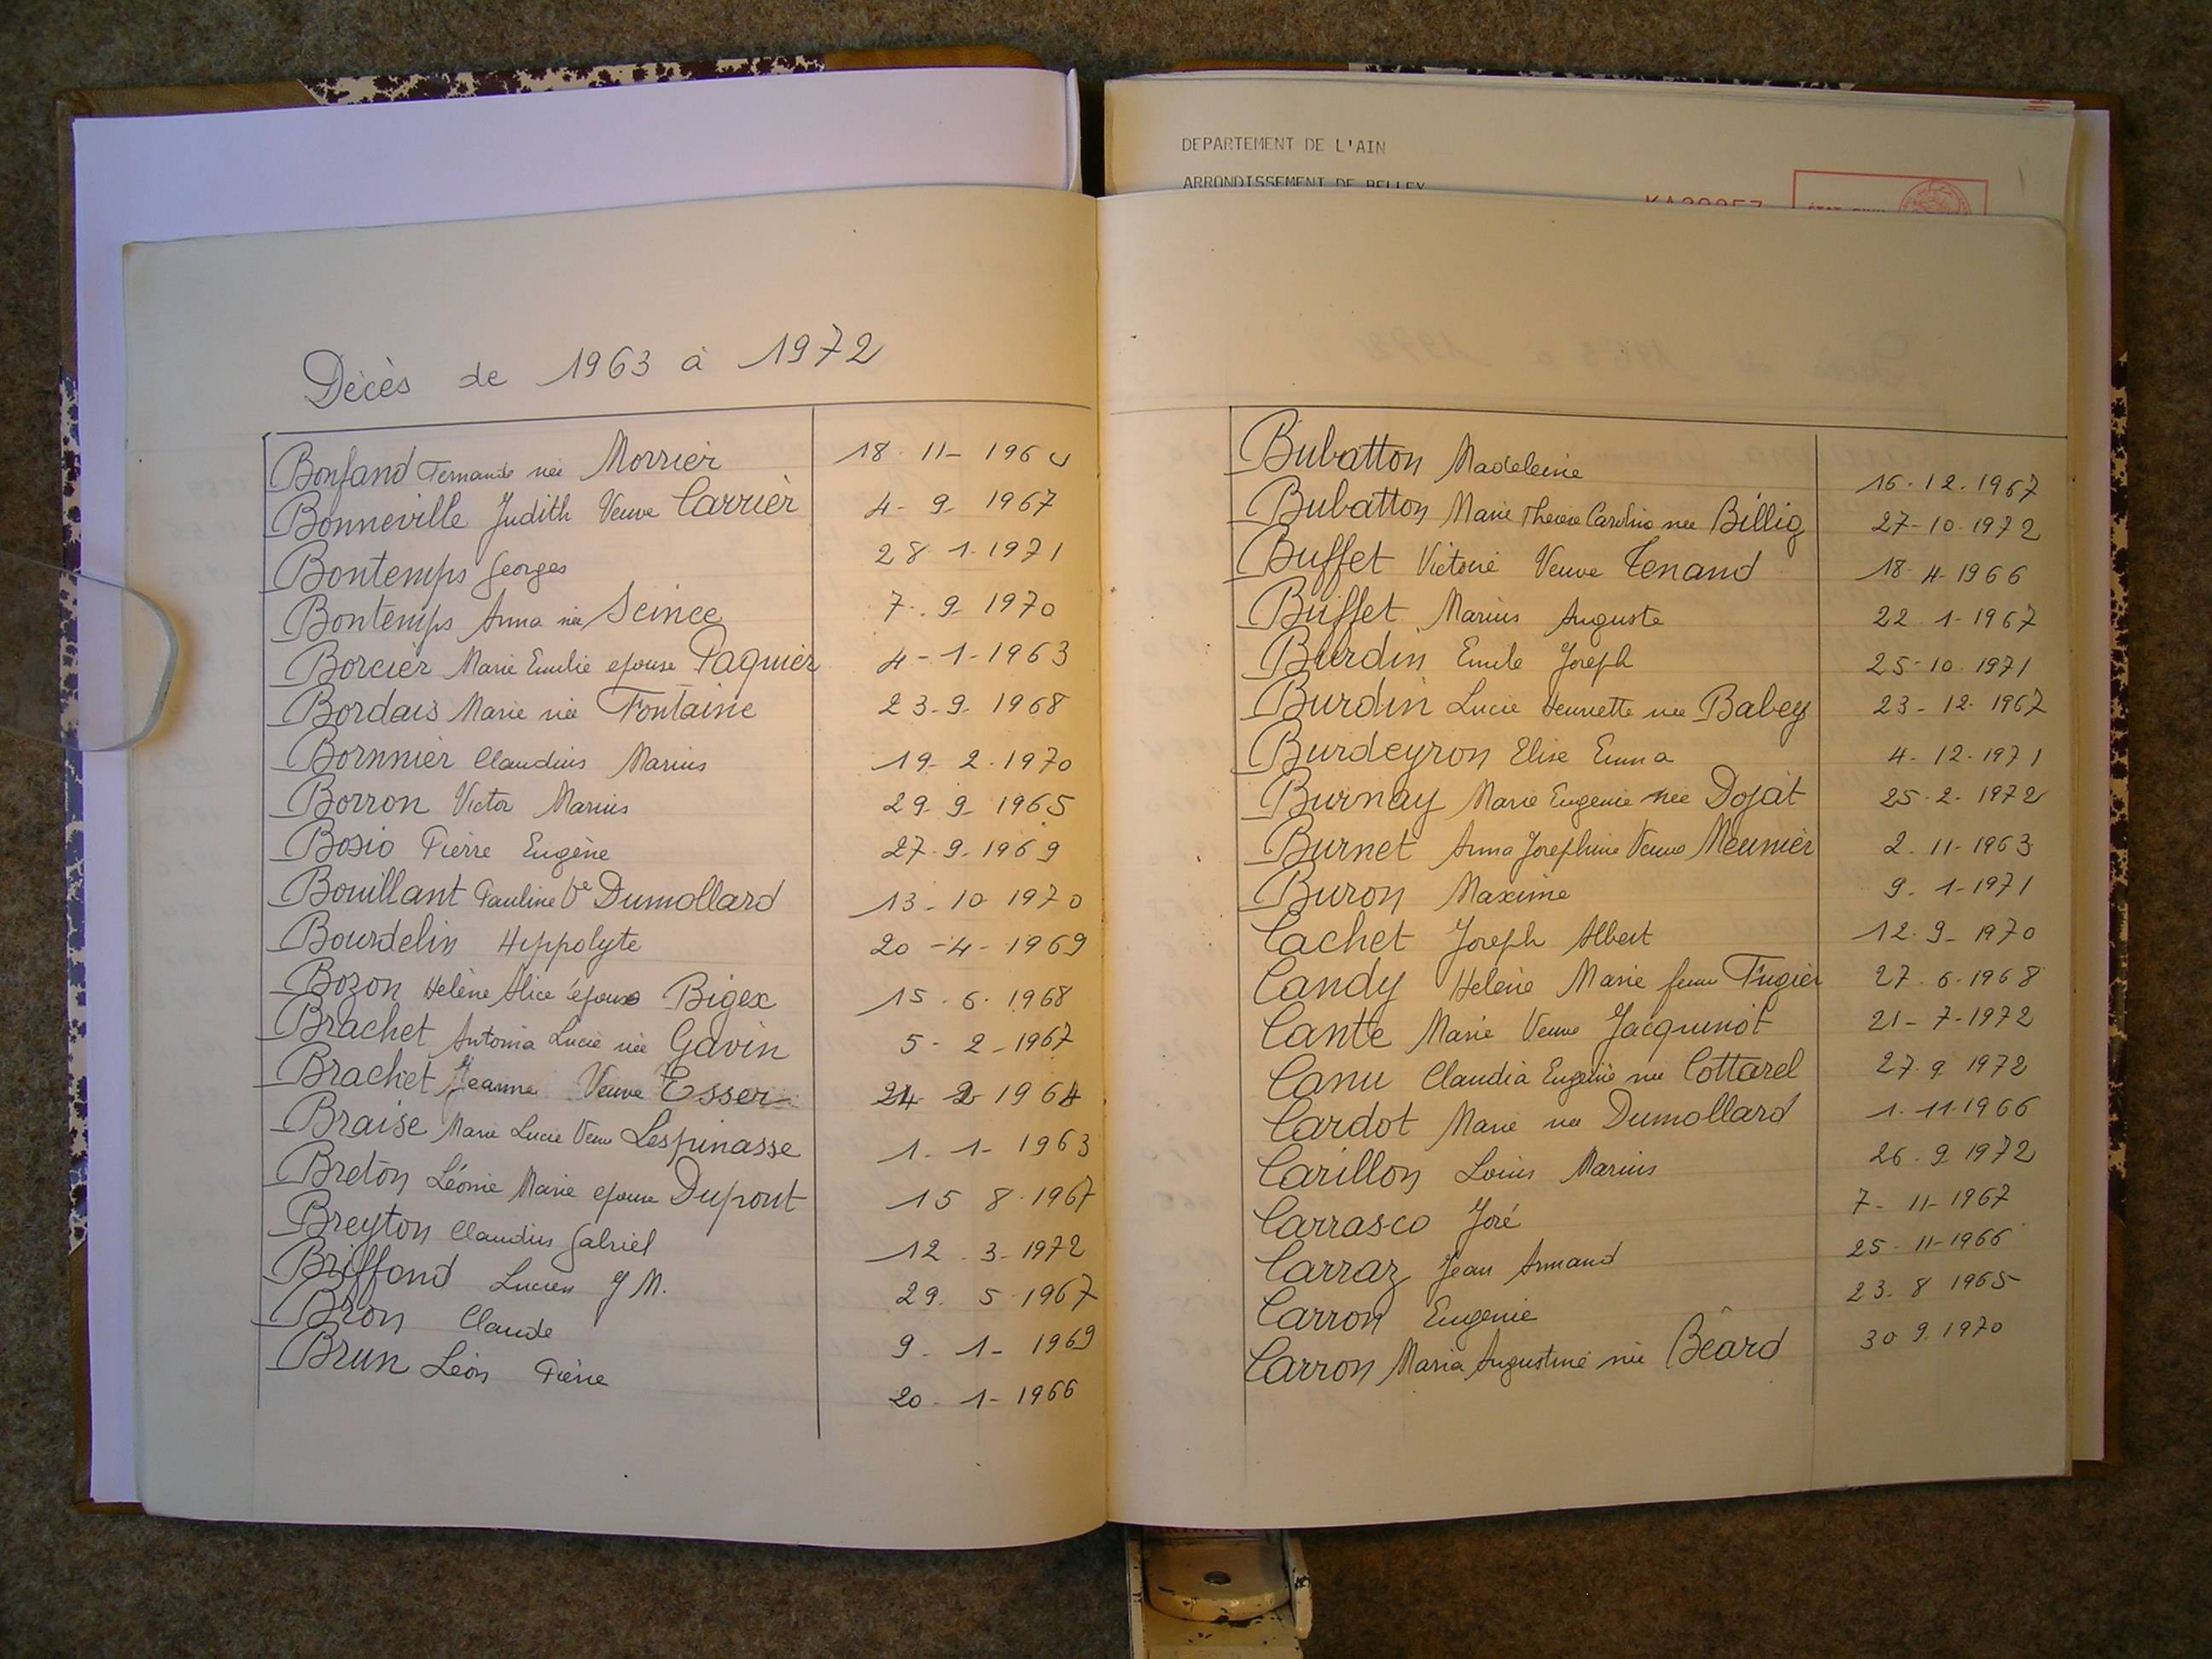 Décès de 1963 à 1972
Bonfand Fernande née Morrier 18-11-1964
Bonneville Judith Veuve Carrier 4-9-1967
Bontemps Georges 28.1.1971
Bontemps Anna née Seince 7-9-1970
Borcier Marie Emilie epouse Paquier 4-1-1963
Bordais Marie née Fontaine 23-9-1968
Bornnier Claudius Marius 19-2-1970
Borron Victor Marius 29-9-1965
Bosio Pierre Eugène 27-9-1969
Bouillant Pauline Ve Dumollard 13-10-1970
Bourdelin Hippolyte 20-4-1969
Bozon Helène Alice épouse Bigex 15-6-1968
Brachet Antonia Lucie née Gavin 5-2-1967
Brachet Jeanne Veuve Esser 1964
Braise Marie Lucie Veuve Lespinasse 1-1-1963
Breton Léonie Marie epouse Dupont 15 8-1967
Breyton Claudius Gabriel 12-3-1972
Briffond Lucien J M. 29. 5-1967
Bron Claude 9-1-1969
Brun Léon Pierre 20-1-1966
DEPARTEMENT DE L'AIN
ARRONDISSEMENT DE BELLEY
Bubatton Madeleine 16.12.1967
Bubatton Marie Therese née Billig 27-10-1972
Buffet Victorie Veuve Tenand 18-4-1966
Buffet Marius Auguste 22-1-1967
Burdin Emile Joseph 25-10-1971
Burdin Lucie Henriette née Babey 23-12-1967
Burdeyron Elise Emma 4-12-1971
Burnay Marie Eugenie née Dojat 25-2-1972
Burnet Anna Josephine Veuve Meunier 2-11-1963
Buron Maxime 9-1-1971
Cachet Joseph Albert 12-9-1970
Candy Helène Marie femme Fugier 27-6-1968
Cante Marie Veuve Jacquinot 21-7-1972
Canu Claudia Eugénie née Cottarel 27-9 1972
Cardot Marie née Dumollard 1-11-1966
Carillon Louis Marius 26-9 1972
Carrasco José 7-11-1967
Carraz Jean Armand 25-11-1966
Carron Eugenie 23-8 1965
Carron Maria Augustine née Béard 30 9.1970